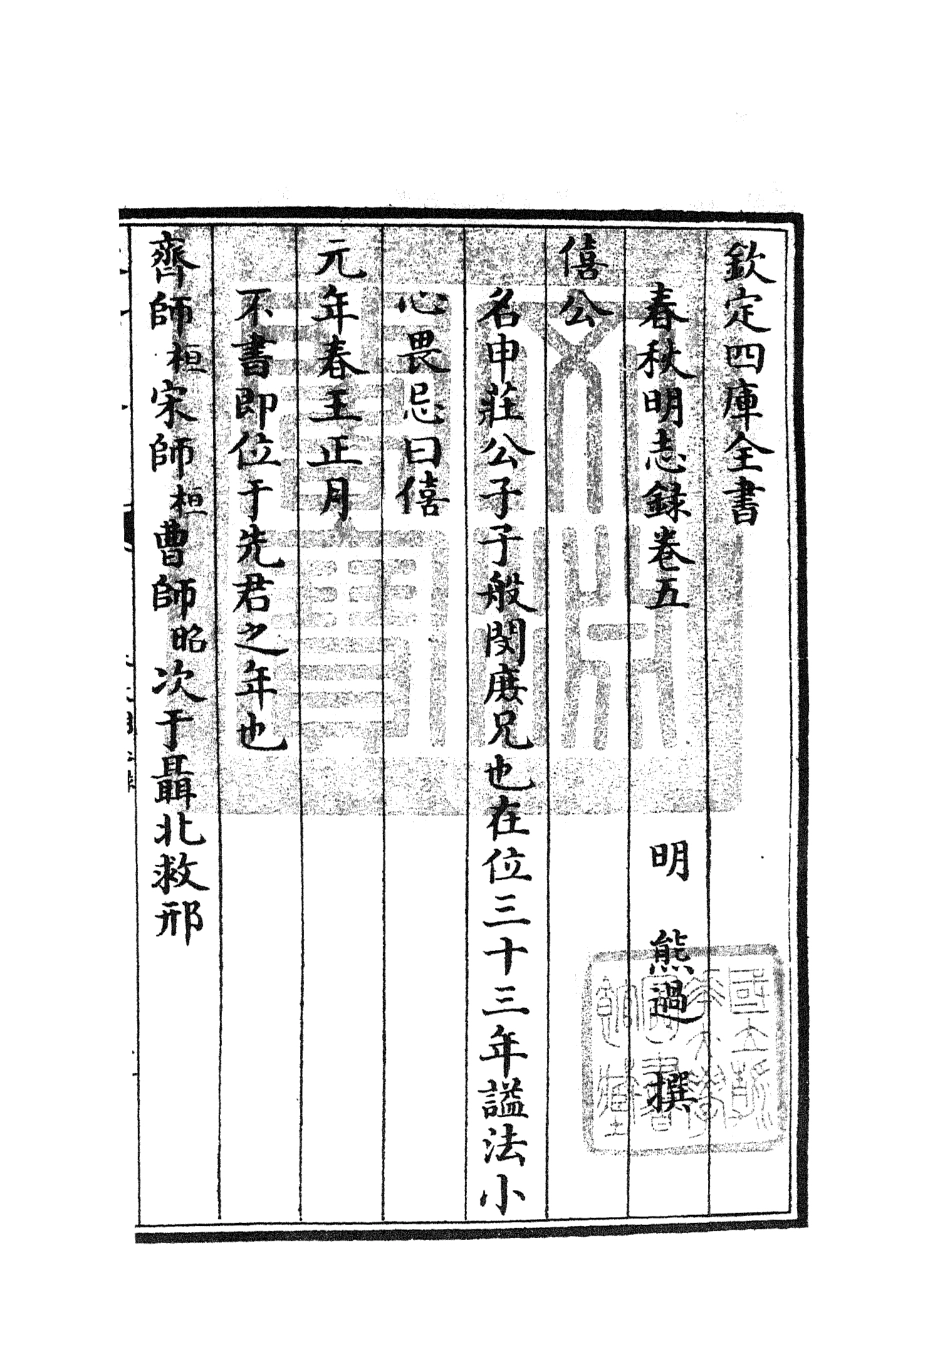 欽定四庫全書
春秋明志録卷五
明 熊過 撰
僖公
名申莊公子子般閔庶兄也在位三十三年謚法小
心畏忌曰僖
元年春王正月
不書即位于先君之年也
齊師桓宋師桓曹師昭次于聶北救邢